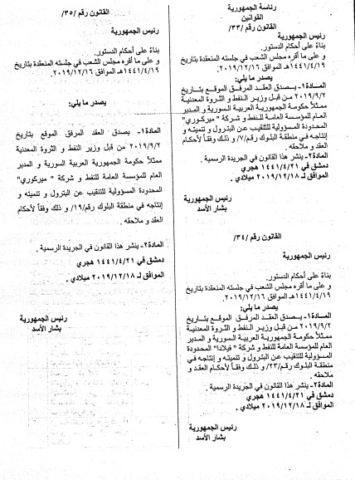 رئاسة الجمهورية
القوانين
القانون رقم /٣٣/
رئيس الجمهورية
بناءً على أحكام الدستور.
و على ما أقره مجلس الشعب في جلسته المنعقدة بتاريخ
١٤٤١/٤/١٩هـ الموافق ٢٠١٩/١٢/١٦م.
يصدر ما يلي:
المادة١- يصدق العقد المرفق الموقع بتاريخ
٢٠١٩/٩/٢ من قبل وزير النفط و الثروة المعدنية
ممثلاً حكومة الجمهورية العربية السورية و المدير
العام للمؤسسة العامة للنفط و شركة " ميركوري"
المحدودة المسؤولية للتنقيب عن البترول و تنميته و
إنتاجه في منطقة البلوك رقم/٧/ و ذلك وفقاً لأحكام العقد
و ملاحقه .
المادة٢- ينشر هذا القانون في الجريدة الرسمية .
دمشق في ١٤٤١/٤/٢١ هجري
الموافق لـ ٢٠١٩/١٢/١٨ ميلادي .
رئيس الجمهورية
بشار الأسد
القانون رقم /٣٤/
رئيس الجمهورية
بناءً على أحكام الدستور.
و على ما أقره مجلس الشعب في جلسته المنعقدة بتاريخ
١٤٤١/٤/١٩هـ الموافق ٢٠١٩/١٢/١٦م.
يصدر ما يلي:
المادة١- يصدق العقد المرفق الموقع بتاريخ
٢٠١٩/٩/٢ من قبل وزير النفط و الثروة المعدنية
ممثلاً حكومة الجمهورية العربية السورية و المدير
العام للمؤسسة العامة للنفط و شركة " فيلادا" المحدودة
المسؤولية للتنقيب عن البترول و تنميته و إنتاجه في
منطقة البلوك رقم/٢٣/ و ذلك وفقاً لأحكام العقد و
ملاحقه .
المادة٢- ينشر هذا القانون في الجريدة الرسمية .
دمشق في ١٤٤١/٤/٢١ هجري
الموافق لـ ٢٠١٩/١٢/١٨ ميلادي .
رئيس الجمهورية
بشار الأسد
القانون رقم /٣٥/
رئيس الجمهورية
بناءً على أحكام الدستور.
و على ما أقره مجلس الشعب في جلسته المنعقدة بتاريخ
١٤٤١/٤/١٩هـ الموافق ٢٠١٩/١٢/١٦م.
يصدر ما يلي:
المادة١- يصدق العقد المرفق الموقع بتاريخ
٢٠١٩/٩/٢ من قبل وزير النفط و الثروة المعدنية
ممثلاً حكومة الجمهورية العربية السورية و المدير
العام للمؤسسة العامة للنفط و شركة " ميركوري"
المحدودة المسؤولية للتنقيب عن البترول و تنميته و
إنتاجه في منطقة البلوك رقم/١٩/ و ذلك وفقاً لأحكام
العقد و ملاحقه .
المادة٢- ينشر هذا القانون في الجريدة الرسمية .
دمشق في ١٤٤١/٤/٢١ هجري
الموافق لـ ٢٠١٩/١٢/١٨ ميلادي .
رئيس الجمهورية
بشار الأسد